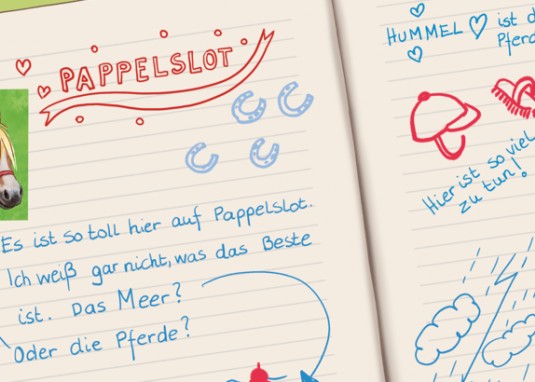 PAPPELSLOT
Es ist so toll hier auf Pappelslot.
Ich weiß gar nicht, was das Beste
ist. Das Meer?
Oder die Pferde?
HUMMEL ist d
Pferd
Hier ist so viel
zu tun!